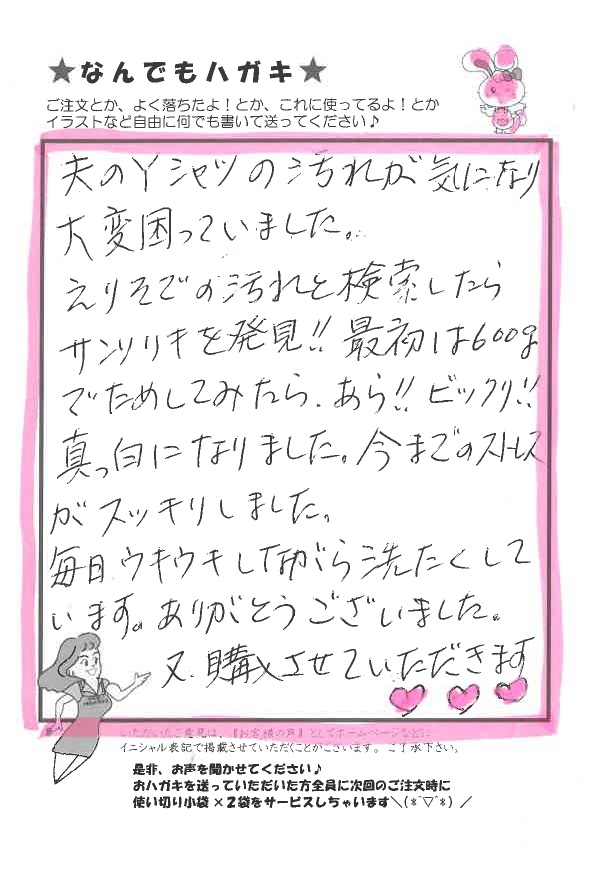 ★なんでもハガキ★
ご注文とか、よく落ちたよ！とか、これに使ってるよ！とか
イラストなど自由に何でも書いて送ってください♪
夫のYシャツの汚れが気になり
大変困っていました。
えりそでの汚れと検索したら
サンソリキを発見!! 最初は600g
でためしてみたら、あら!! ビックリ!!
真っ白になりました。今までのストレス
がスッキリしました。
毎日ウキウキしながら洗たくして
います。ありがとうございました。
又、購入させていただきます
いただいたご意見は、『お客様の声』としてホームページなどに
イニシャル表記で掲載させていただくことがございます。ご了承下さい。
是非、お声を聞かせてください♪
おハガキを送っていただいた方全員に次回のご注文時に
使い切り小袋×2袋をサービスしちゃいます＼(*^▽^*)／